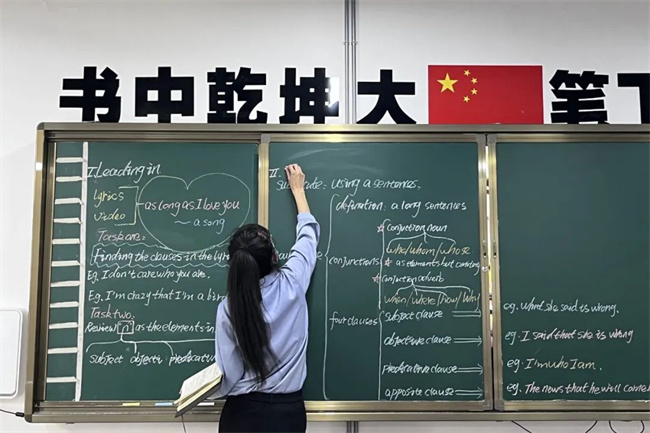 书中乾坤大 笔下
I Leading in
Lyrics
video
as long as I love you
~ a song
Task one:
Finding the clauses in the lyri
Eg. I don't care who you are.
Eg. I'm crazy that I'm a bir
Task two.
Review n as the elements in
subject objecti predicativ
II.
using a sentences.
definition: a long sentences
conjunctions
☆ conjunction noun
who/whom/whose
☆ as elements but
☆ conjunction adverb
when/where/how/why
four clauses
subject clause
objective clause
predicative clause
apposite clause
eg. What she said is wrong.
eg. I said that she is wrong
eg. I'm who I am.
eg. The news that he will come